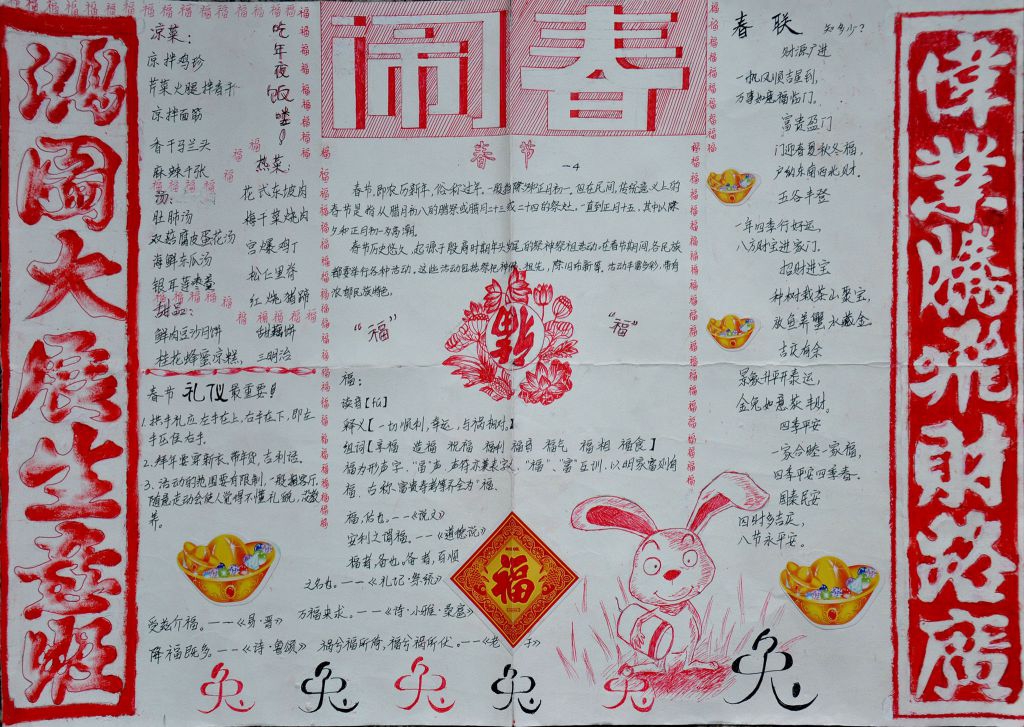 鴻圖大展生意班
偉業騰飛財路廣
闹春
吃年夜饭喽!
凉菜:
凉拌鸡珍
芹菜火腿拌香干
凉拌面筋
香干马兰头
麻辣千张
汤:
肚肺汤
双菇腐皮蛋花汤
海鲜冬瓜汤
银耳莲枣羹
甜品:
鲜肉豆沙月饼 甜藕饼
桂花蜂蜜凉糕, 三明治
热菜:
花式东坡肉
梅干菜烧肉
宫爆鸡丁
松仁里脊
红烧猪蹄
春节礼仪最重要!!
1.拱手礼应左手在上,右手在下,即左手压住右手。
2.拜年要穿新衣,带年货,吉利话。
3.活动的范围要有限制,一般在客厅,
随意走动会使人觉得不懂礼貌,没教养。
春节
春节,即农历新年,俗称过年。一般指除夕和正月初一。但在民间,传统意义上的
春节是指从腊月初八的腊祭或腊月二十三或二十四的祭灶,一直到正月十五,其中以除
夕和正月初一为高潮。
春节历史悠久,起源于殷商时期年头岁尾的祭神祭祖活动。在春节期间,各民族
都要举行各种活动。这些活动包括祭祀神佛、祖先,除旧布新等,活动丰富多彩,带有
浓郁民族特色。
“福”
“福”
福
福:
读音【fú】
释义【一切顺利,幸运,与祸相对。】
组词【享福 造福 祝福 福利 福星 福气 福相 福食】
福为形声字,“畐”声,声符亦兼表字义,“福”、“富”互训,以明家富则有
福,
福,佑也。——《说文》
安利之谓福。——《道德说》
福者,备也。备者,百顺
之名也。——《礼记·祭统》
受兹介福。——《易·晋》
万福来求。——《诗·小雅·桑扈》
降福既多。——《诗·鲁颂》
祸兮福所倚,福兮祸所伏。——《老子》
福
春联 知多少?
财源广进
一帆风顺吉星到,
万事如意福临门。
富贵盈门
门迎春夏秋冬福,
户纳东南西北财。
五谷丰登
一年四季行好运,
八方财宝进家门。
招财进宝
种树栽茶山聚宝,
放鱼养蟹水藏金。
吉庆有余
景象升平开泰运,
金兔如意获丰财。
四季平安
一家合睦一家福,
四季平安四季春。
国泰民安
四时多吉庆,
八节永平安。
兔 兔 兔 兔 兔 兔